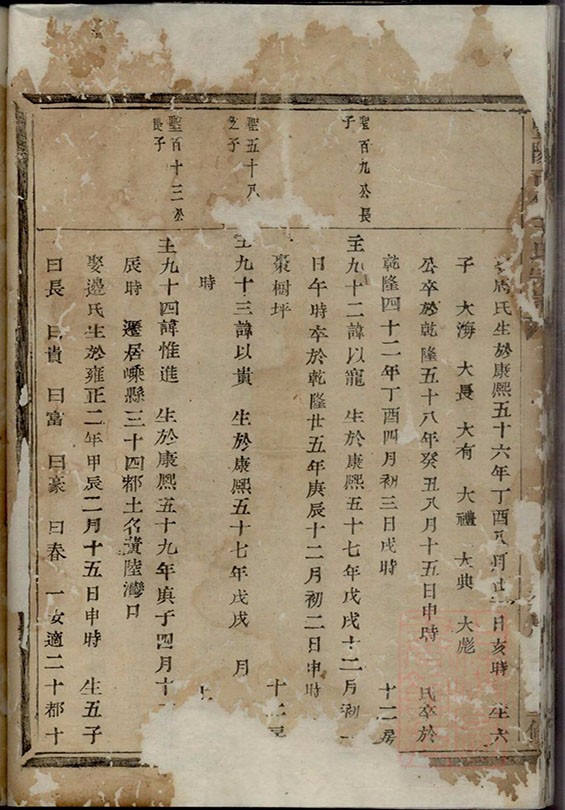 周氏生於康熙五十六年丁酉八月廿日亥時 生六
子 大海 大長 大有 大禮 大典 大彪
公卒於乾隆五十八年癸丑八月十五日申時 氏卒於
乾隆四十二年丁酉四月初三日戌時 十二房
聖百九公長
子
主九十二諱以寵 生於康熙五十七年戊戌十二月初
日午時卒於乾隆廿五年庚辰十二月初二日申時
棗樹坪 十二房
聖五十八
之子
主九十三諱以貴 生於康熙五十七年戊戌 月
時
聖百十三公
長子
主九十四諱惟進 生於康熙五十九年庚子四月十
辰時 遷居嵊縣三十四都土名黃陸灣口
娶邊氏生於雍正二年甲辰二月十五日申時 生五子
曰長 曰貴 曰富 曰豪 曰春 一女適二十都十